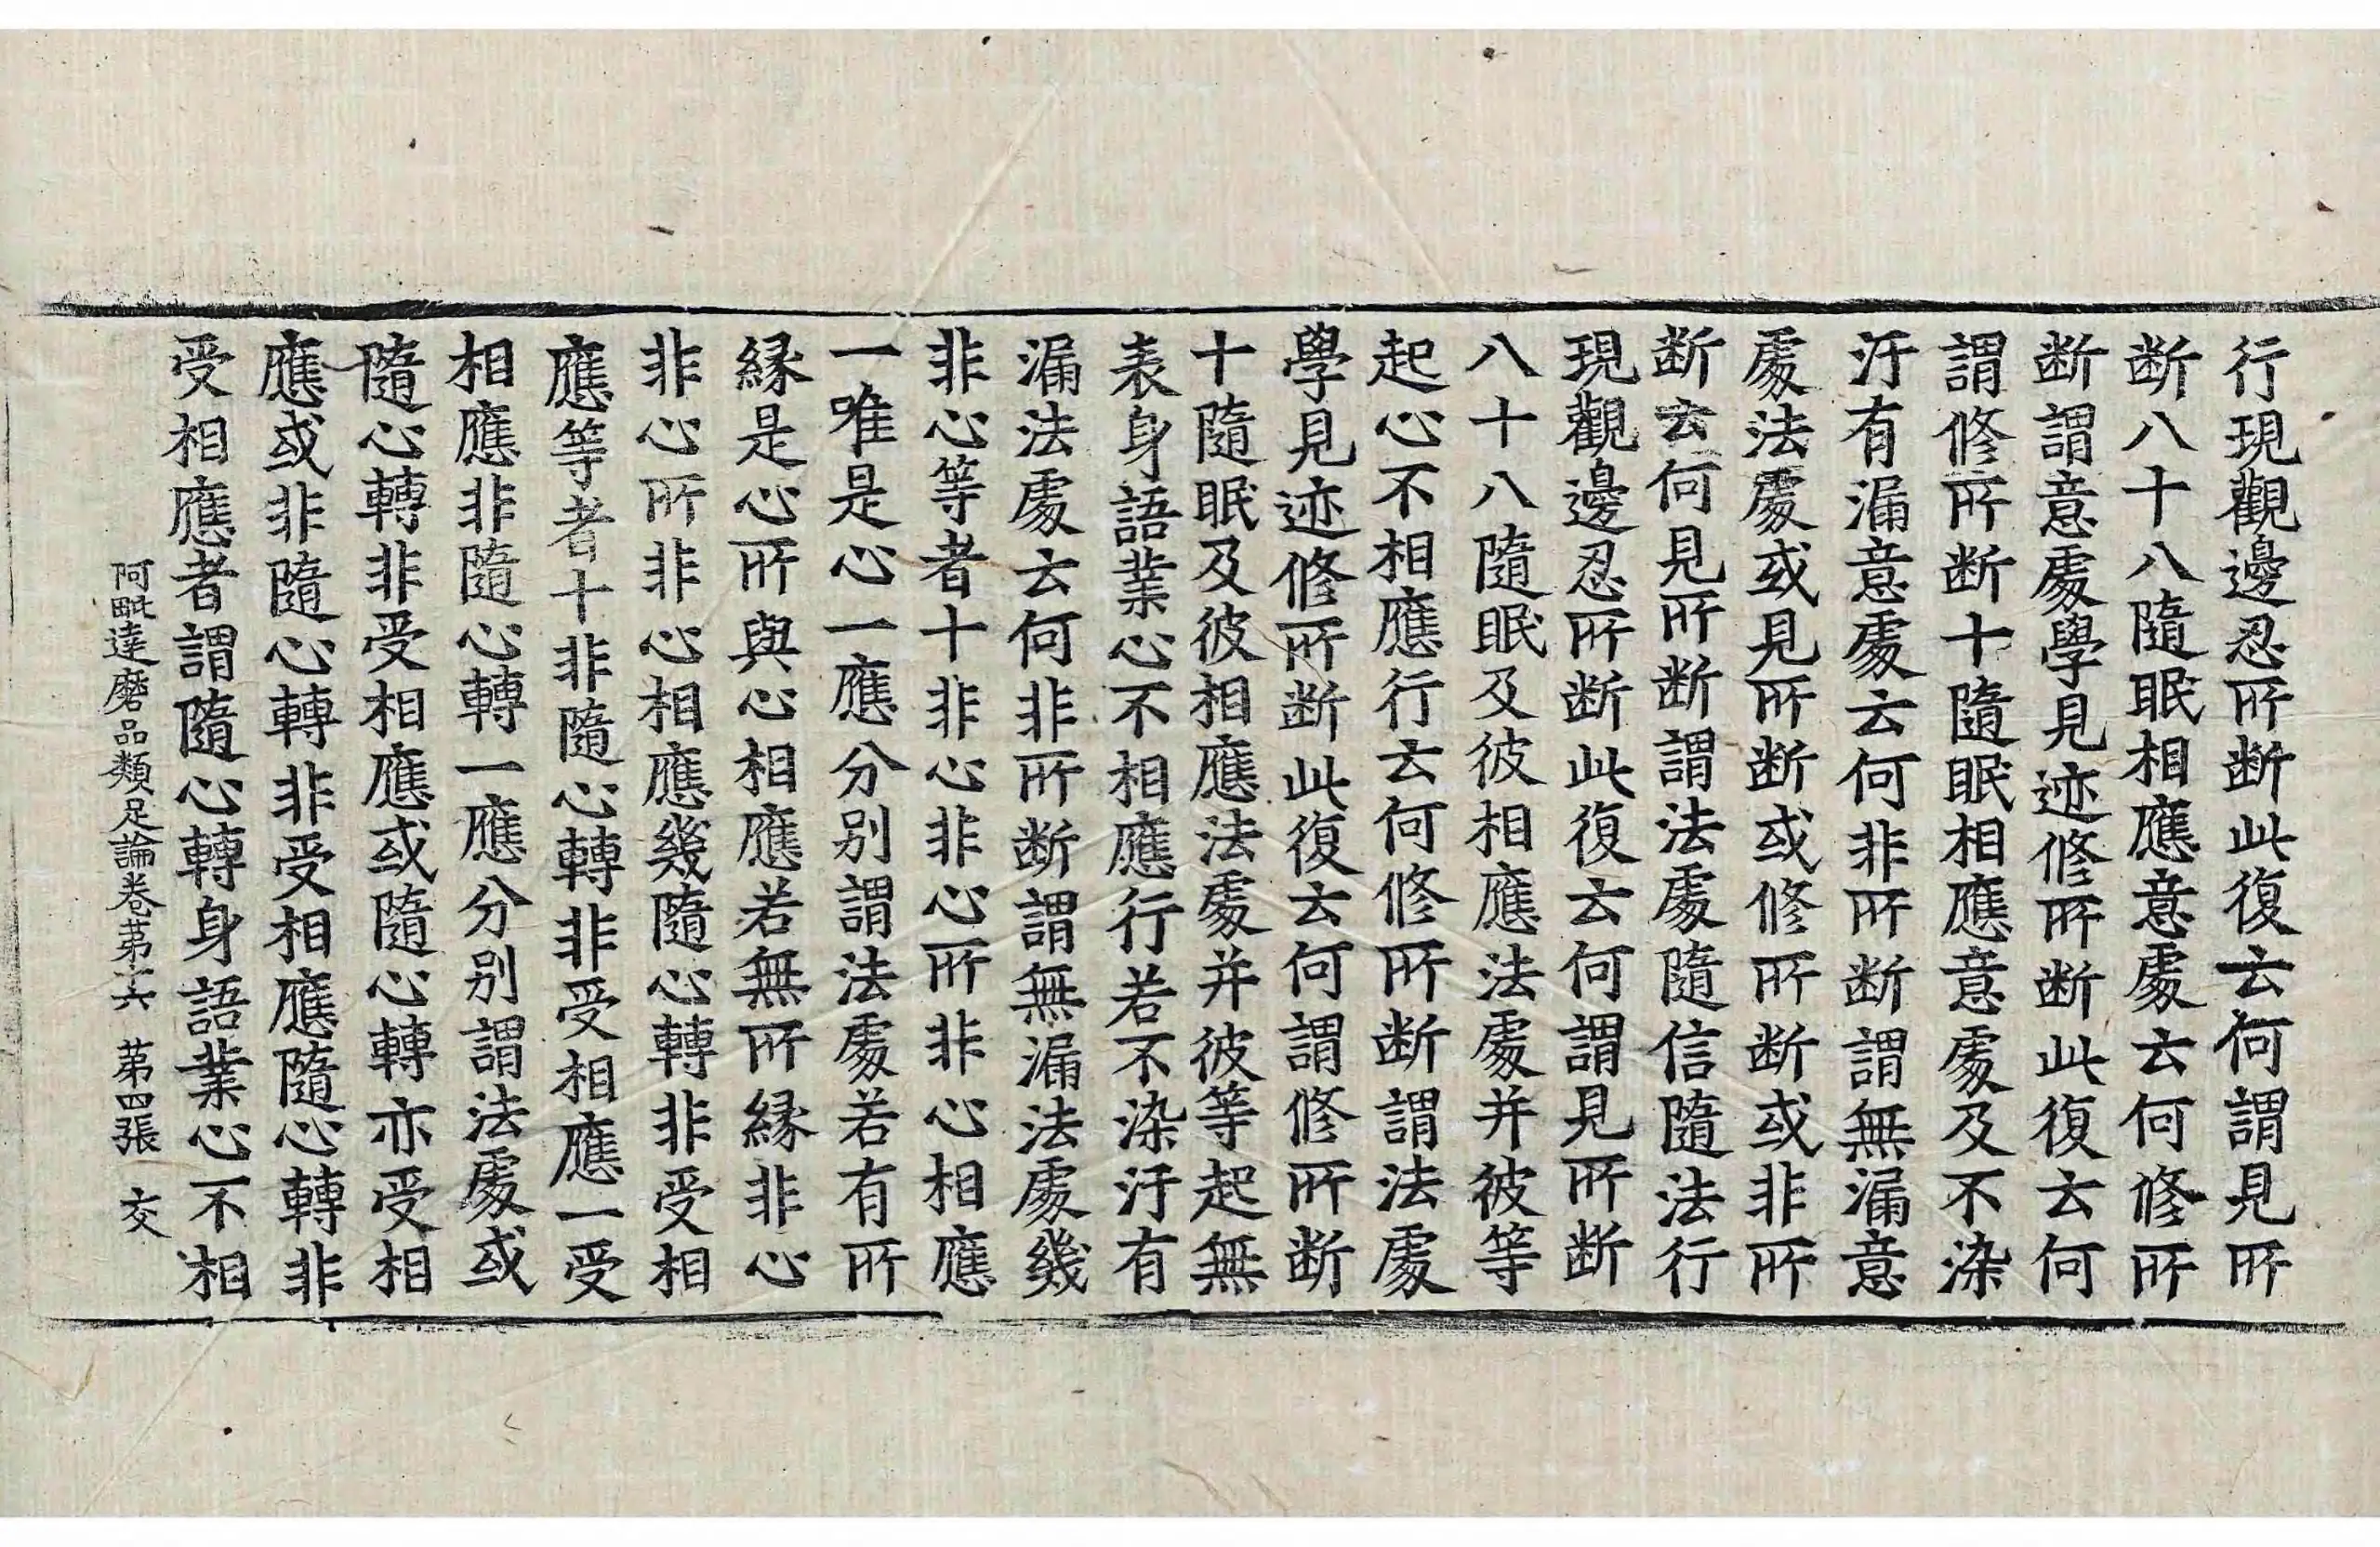 行現觀邊忍所断此復云何謂見所
断八十八隨眠相應意處云何修所
断謂意處學見迹修所断此復云何
謂修所断十隨眠相應意處及不染
汙有漏意處云何非所断謂無漏意
處法處或見所断或修所断或非所
断云何見所断謂法處隨信隨法行
現觀邊忍所断此復云何謂見所断
八十八隨眠及彼相應法處并彼等
起心不相應行云何修所断謂法處
學見迹修所断此復云何謂修所断
十隨眠及彼相應法處并彼等起無
表身語業心不相應行若不染汙有
漏法處云何非所断謂無漏法處幾
非心等者十非心非心所非心相應
一唯是心一應分别謂法處若有所
縁是心所與心相應若無所縁非心
非心所非心相應幾隨心轉非受相
應等者十非隨心轉非受相應一受
相應非隨心轉一應分别謂法處或
隨心轉非受相應或隨心轉亦受相
應或非隨心轉非受相應隨心轉非
受相應者謂隨心轉身語業心不相
阿毗達磨品類足論卷苐十六 苐四張 交